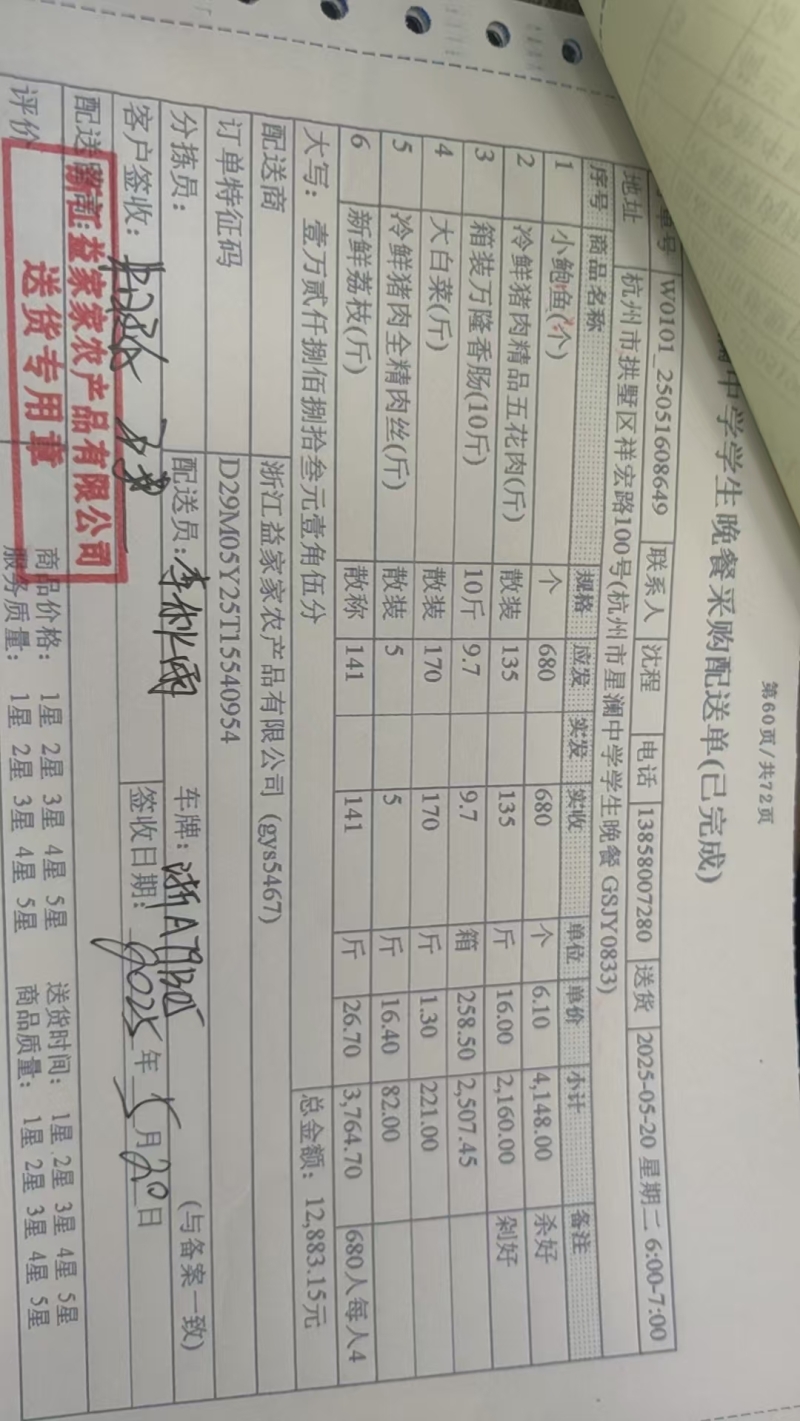 第60页/共72页
中学学生晚餐采购配送单(已完成)
单号 W0101_25051608649 联系人 沈程 电话 13858007280 送货 2025-05-20 星期二 6:00-7:00
地址 杭州市拱墅区祥宏路100号(杭州市星澜中学学生晚餐 GSJY0833)
序号 商品名称 规格 应发 实发 实收 单位 单价 小计 备注
1 小鲍鱼(个) 个 680 680 个 6.10 4,148.00 杀好
2 冷鲜猪肉精品五花肉(斤) 散装 135 135 斤 16.00 2,160.00 剁好
3 箱装万隆香肠(10斤) 10斤 9.7 9.7 箱 258.50 2,507.45
4 大白菜(斤) 散装 170 170 斤 1.30 221.00
5 冷鲜猪肉全精肉丝(斤) 散装 5 5 斤 16.40 82.00
6 新鲜荔枝(斤) 散称 141 141 斤 26.70 3,764.70 680人每人4
大写：壹万贰仟捌佰捌拾叁元壹角伍分 总金额：12,883.15元
配送商 浙江益家家农产品有限公司 (gys5467)
订单特征码 D29M05Y25T15540954
分拣员： 配送员： 车牌： (与备案一致)
客户签收： 签收日期：2025年5月20日
配送商
浙江益家家农产品有限公司
送货专用章
评价 商品价格： 1星 2星 3星 4星 5星 送货时间： 1星 2星 3星 4星 5星
服务质量： 1星 2星 3星 4星 5星 商品质量： 1星 2星 3星 4星 5星